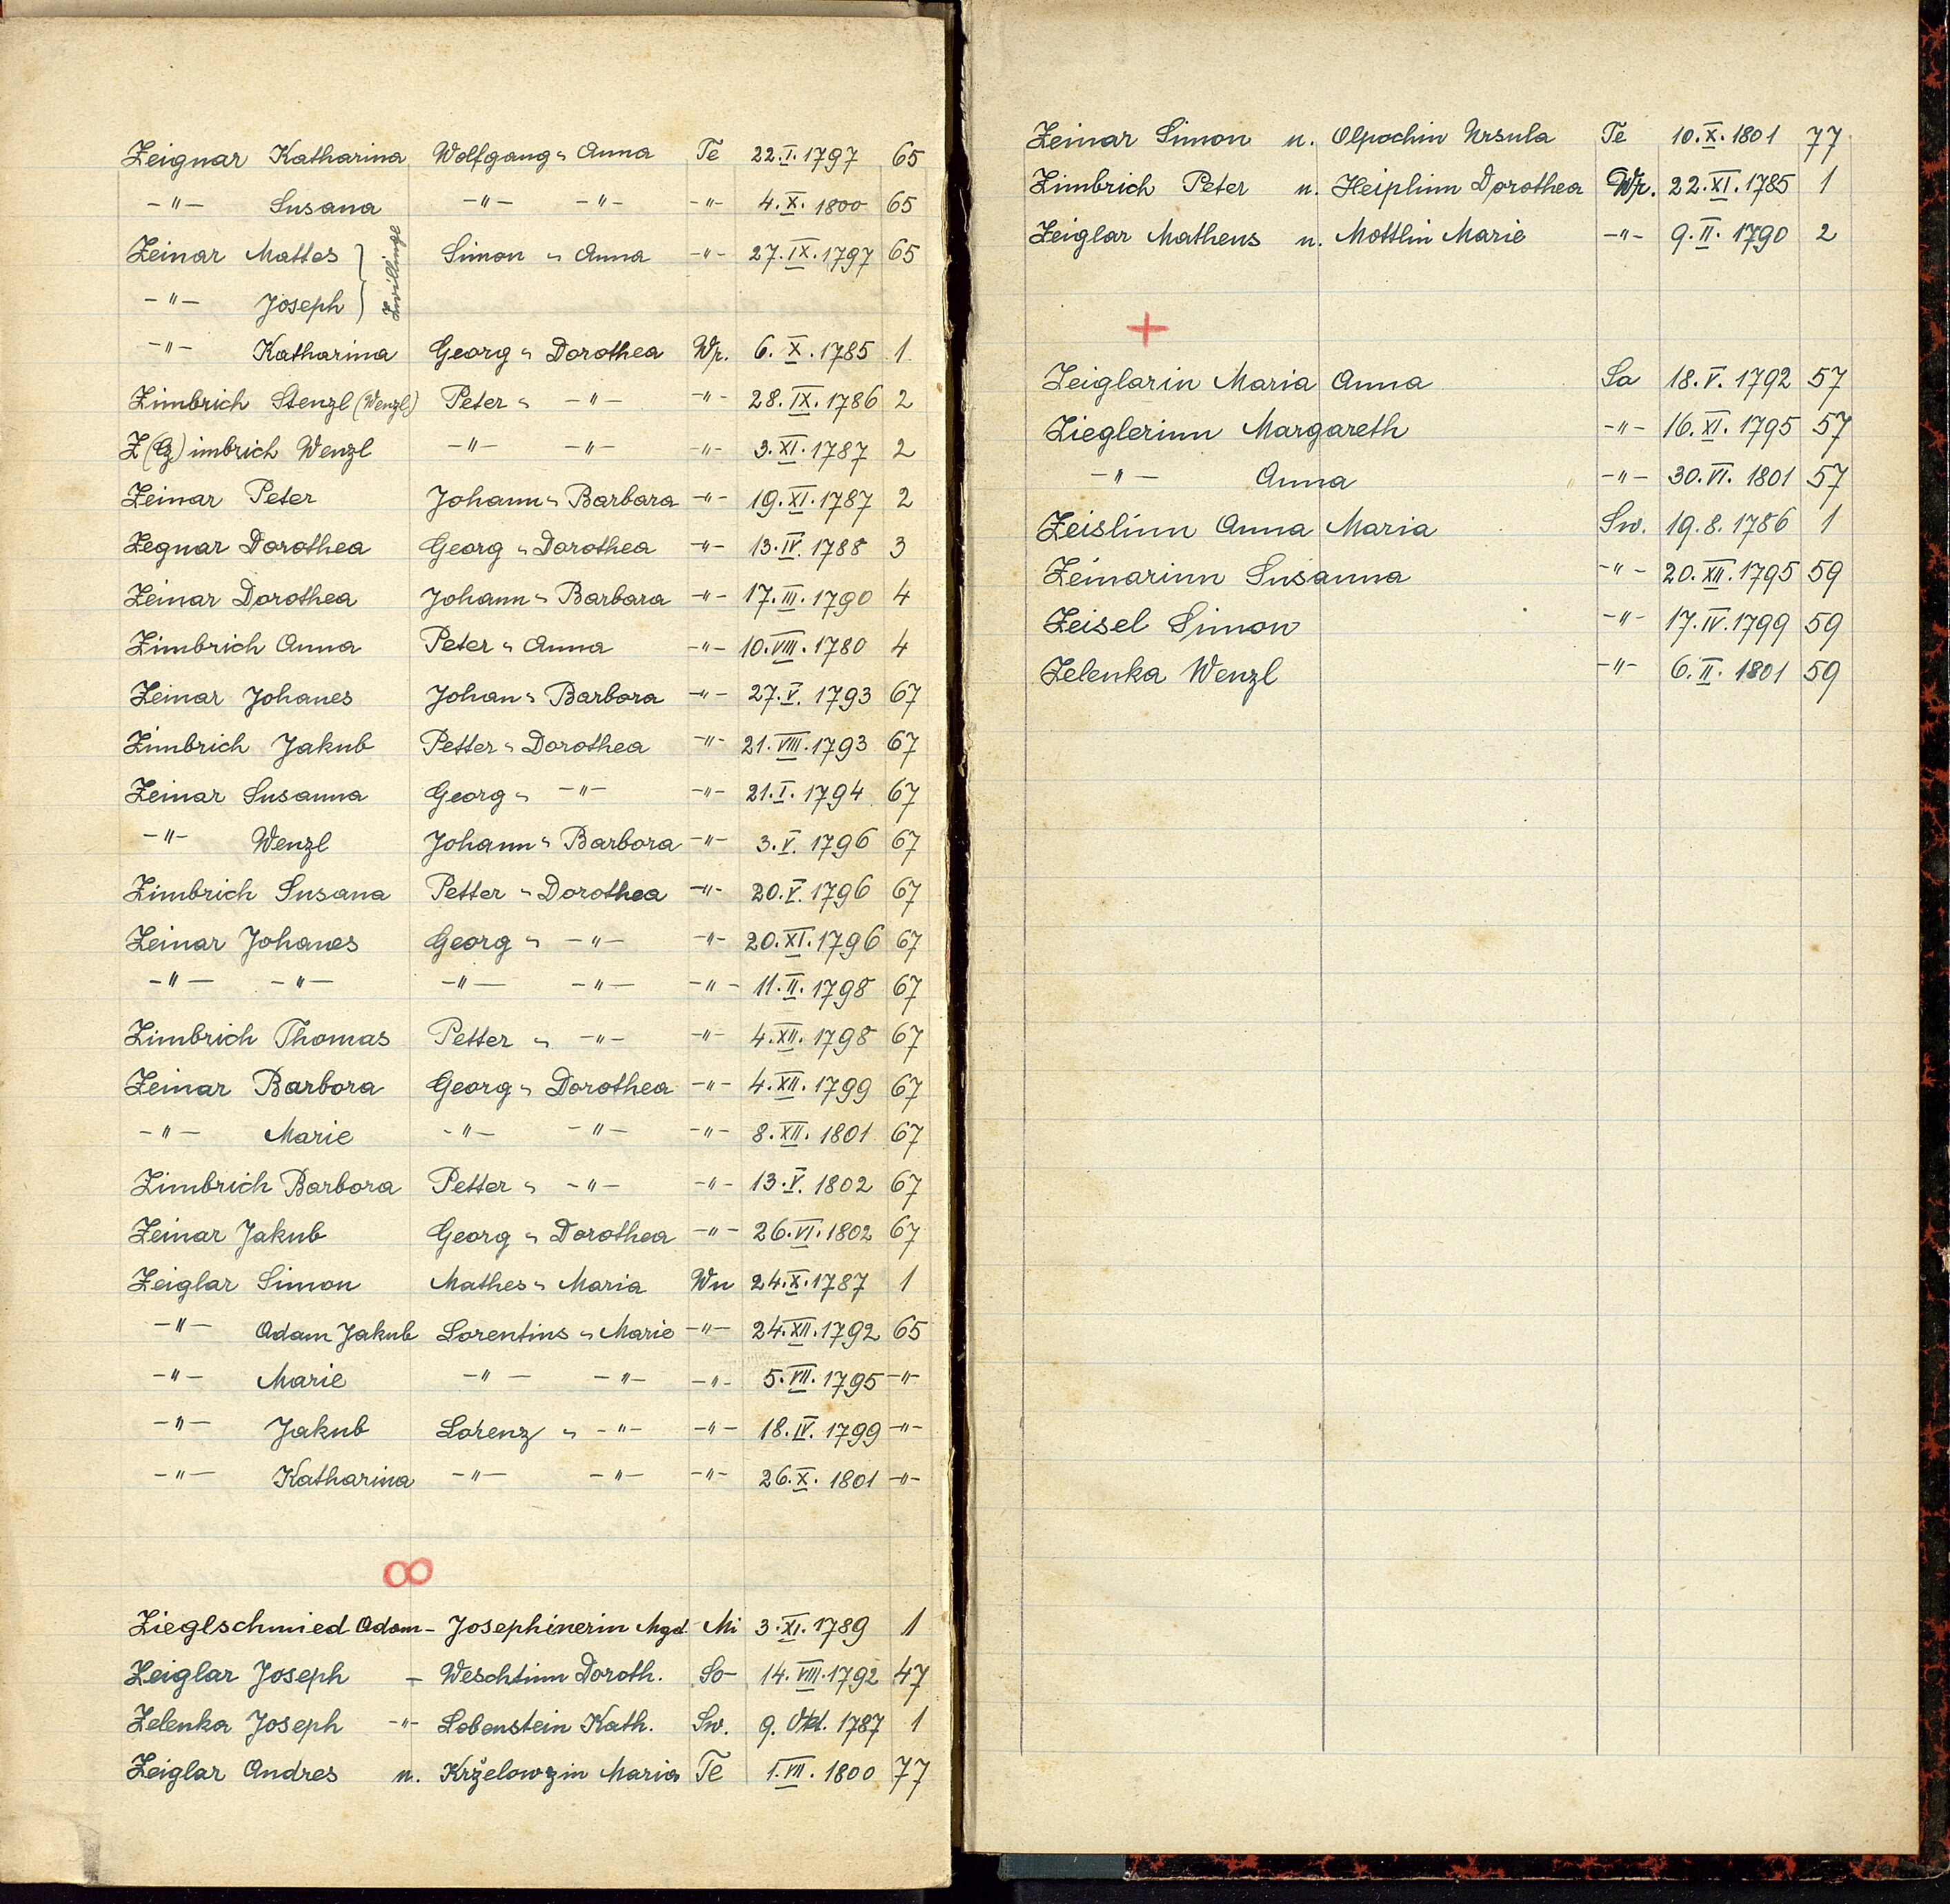 Zeignar Katharina Wolfgang " Anna Te 22.I.1797 65
-"- Susana -"- -"- -"- 4.X.1800 65
Zeinar Mattes } Zwillinge Simon " Anna -"- 27.IX.1797 65
-"- Joseph }
-"- Katharina Georg " Dorothea Wr. 6.X.1785 1
Zimbrich Stenzl (Wenzl) Peter " -"- -"- 28.IX.1786 2
Z(Cz)imbrich Wenzl -"- -"- -"- 3.XI.1787 2
Zeinar Peter Johann " Barbara -"- 19.XI.1787 2
Zegnar Dorothea Georg " Dorothea -"- 13.IV.1788 3
Zeinar Dorothea Johann " Barbara -"- 17.III.1790 4
Zimbrich Anna Peter " Anna -"- 10.VIII.1780 4
Zeinar Johanes Johan " Barbora -"- 27.V.1793 67
Zimbrich Jakub Petter " Dorothea -"- 21.VIII.1793 67
Zeinar Susanna Georg " -"- -"- 21.I.1794 67
-"- Wenzl Johann " Barbora -"- 3.V.1796 67
Zimbrich Susana Petter " Dorothea -"- 20.V.1796 67
Zeinar Johanes Georg " -"- -"- 20.XI.1796 67
-"- -"- -"- -"- -"- 11.II.1798 67
Zimbrich Thomas Petter " -"- -"- 4.XII.1798 67
Zeinar Barbora Georg " Dorothea -"- 4.XII.1799 67
-"- Marie -"- -"- -"- 8.XII.1801 67
Zimbrich Barbora Petter " -"- -"- 13.V.1802 67
Zeinar Jakub Georg " Dorothea -"- 26.VI.1802 67
Zeiglar Simon Mathes " Maria Wn 24.X.1787 1
-"- Adam Jakub Lorentins " Marie -"- 24.XII.1792 65
-"- Marie -"- -"- -"- 5.VII.1795 -"-
-"- Jakub Lorenz " -"- -"- 18.IV.1799 -"-
-"- Katharina -"- -"- -"- 26.X.1801 -"-
∞
Zieglschmied Adam - Josephinerin Mgd. Mi 3.XI.1789 1
Zeiglar Joseph - Weschtinn Doroth. So 14.VIII.1792 47
Zelenka Joseph -"- Lobenstein Kath. Sw. 9. Okt. 1787 1
Zeiglar Andres u. Krželowzin Maria Te 1.VII.1800 77
Zeinar Simon u. Olpochin Ursula Te 10.X.1801 77
Zimbrich Peter u. Heiplinn Dorothea Wr. 22.XI.1785 1
Zeiglar Matheus u. Mottlin Marie -"- 9.II.1790 2
+
Zeiglarin Maria Anna Sa 18.V.1792 57
Zieglerinn Margareth -"- 16.XI.1795 57
-"- Anna -"- 30.VI.1801 57
Zeislinn Anna Maria Sw. 19.8.1786 1
Zeinarinn Susanna -"- 20.XII.1795 59
Zeisel Simon -"- 17.IV.1799 59
Zelenka Wenzl -"- 6.II.1801 59